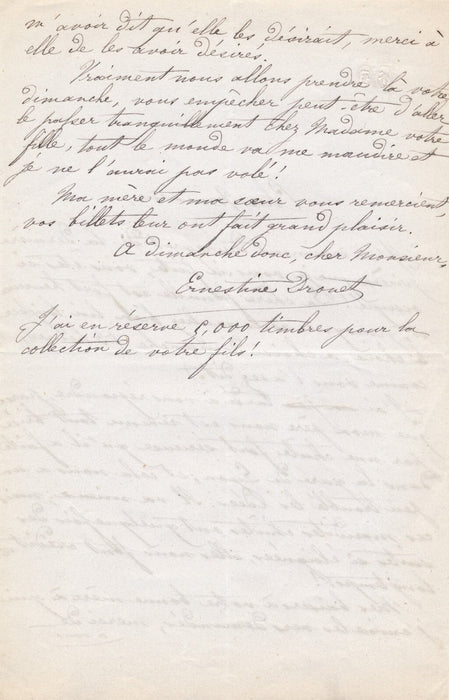 m'avoir dit qu'elle les désirait, merci à
elle de les avoir désirés.
Vraiment nous allons prendre là votre
dimanche, vous empêcher peut-être d'aller
le passer tranquillement chez Madame votre
fille, tout le monde va me maudire et
je ne l'aurai pas volé!
Ma mère et ma sœur vous remercient,
vos billets leur ont fait grand plaisir.
A dimanche donc, cher Monsieur,
Ernestine Drouet
J'ai en réserve 5,000 timbres pour la
collection de votre fils!